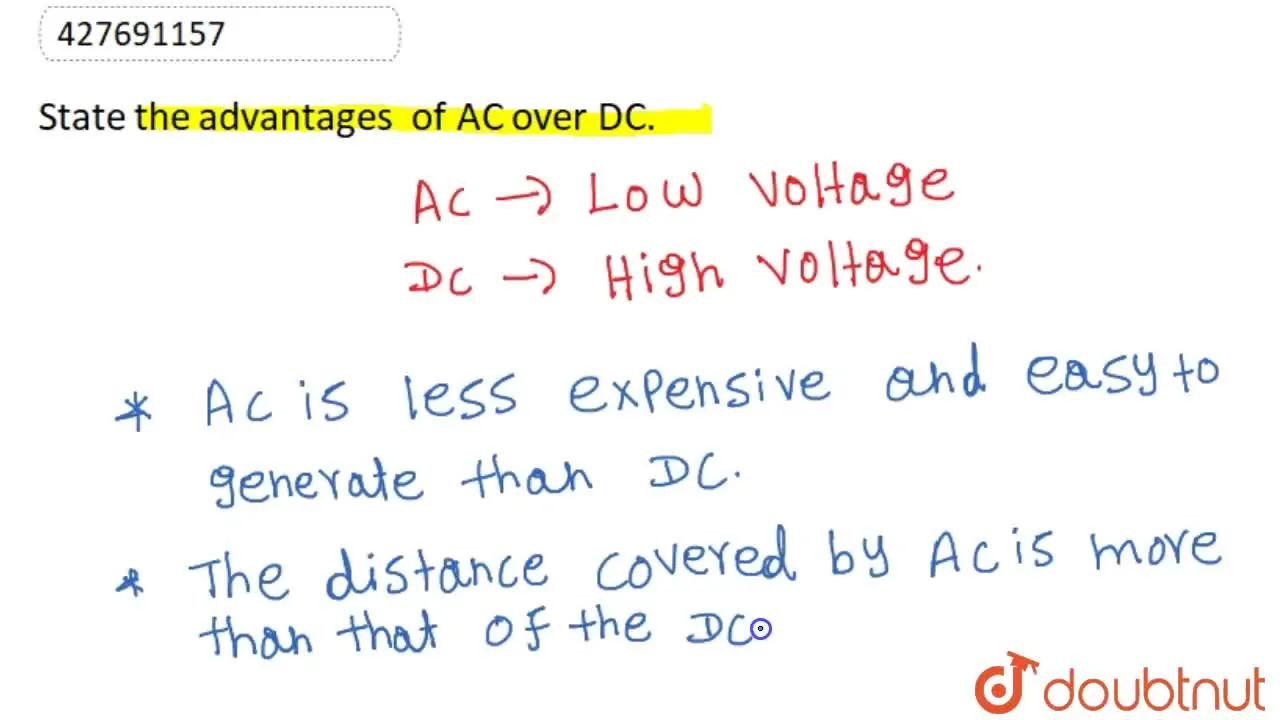 427691157
State the advantages of AC over DC.
AC → Low voltage
DC → High voltage.
* AC is less expensive and easy to
generate than DC.
* The distance covered by AC is more
than that of the DC
doubtnut